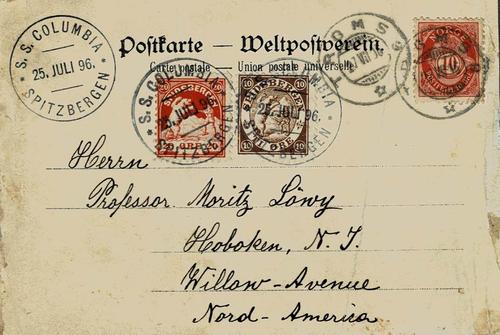 S. S. COLUMBIA
25. JULI 96.
SPITZBERGEN
Postkarte — Weltpostverein.
Carte postale Union postale universelle
TROMSØ
NORGE
10
S. S. COLUMBIA
25. JULI 96.
SPITZBERGEN
SPIDSBERGEN
10 ØRE 10
COLUMBIA
25. JULI 96.
BERGEN
Herrn
Professor Moritz Löwy
Hoboken, N. J.
Willow-Avenue
Nord-America